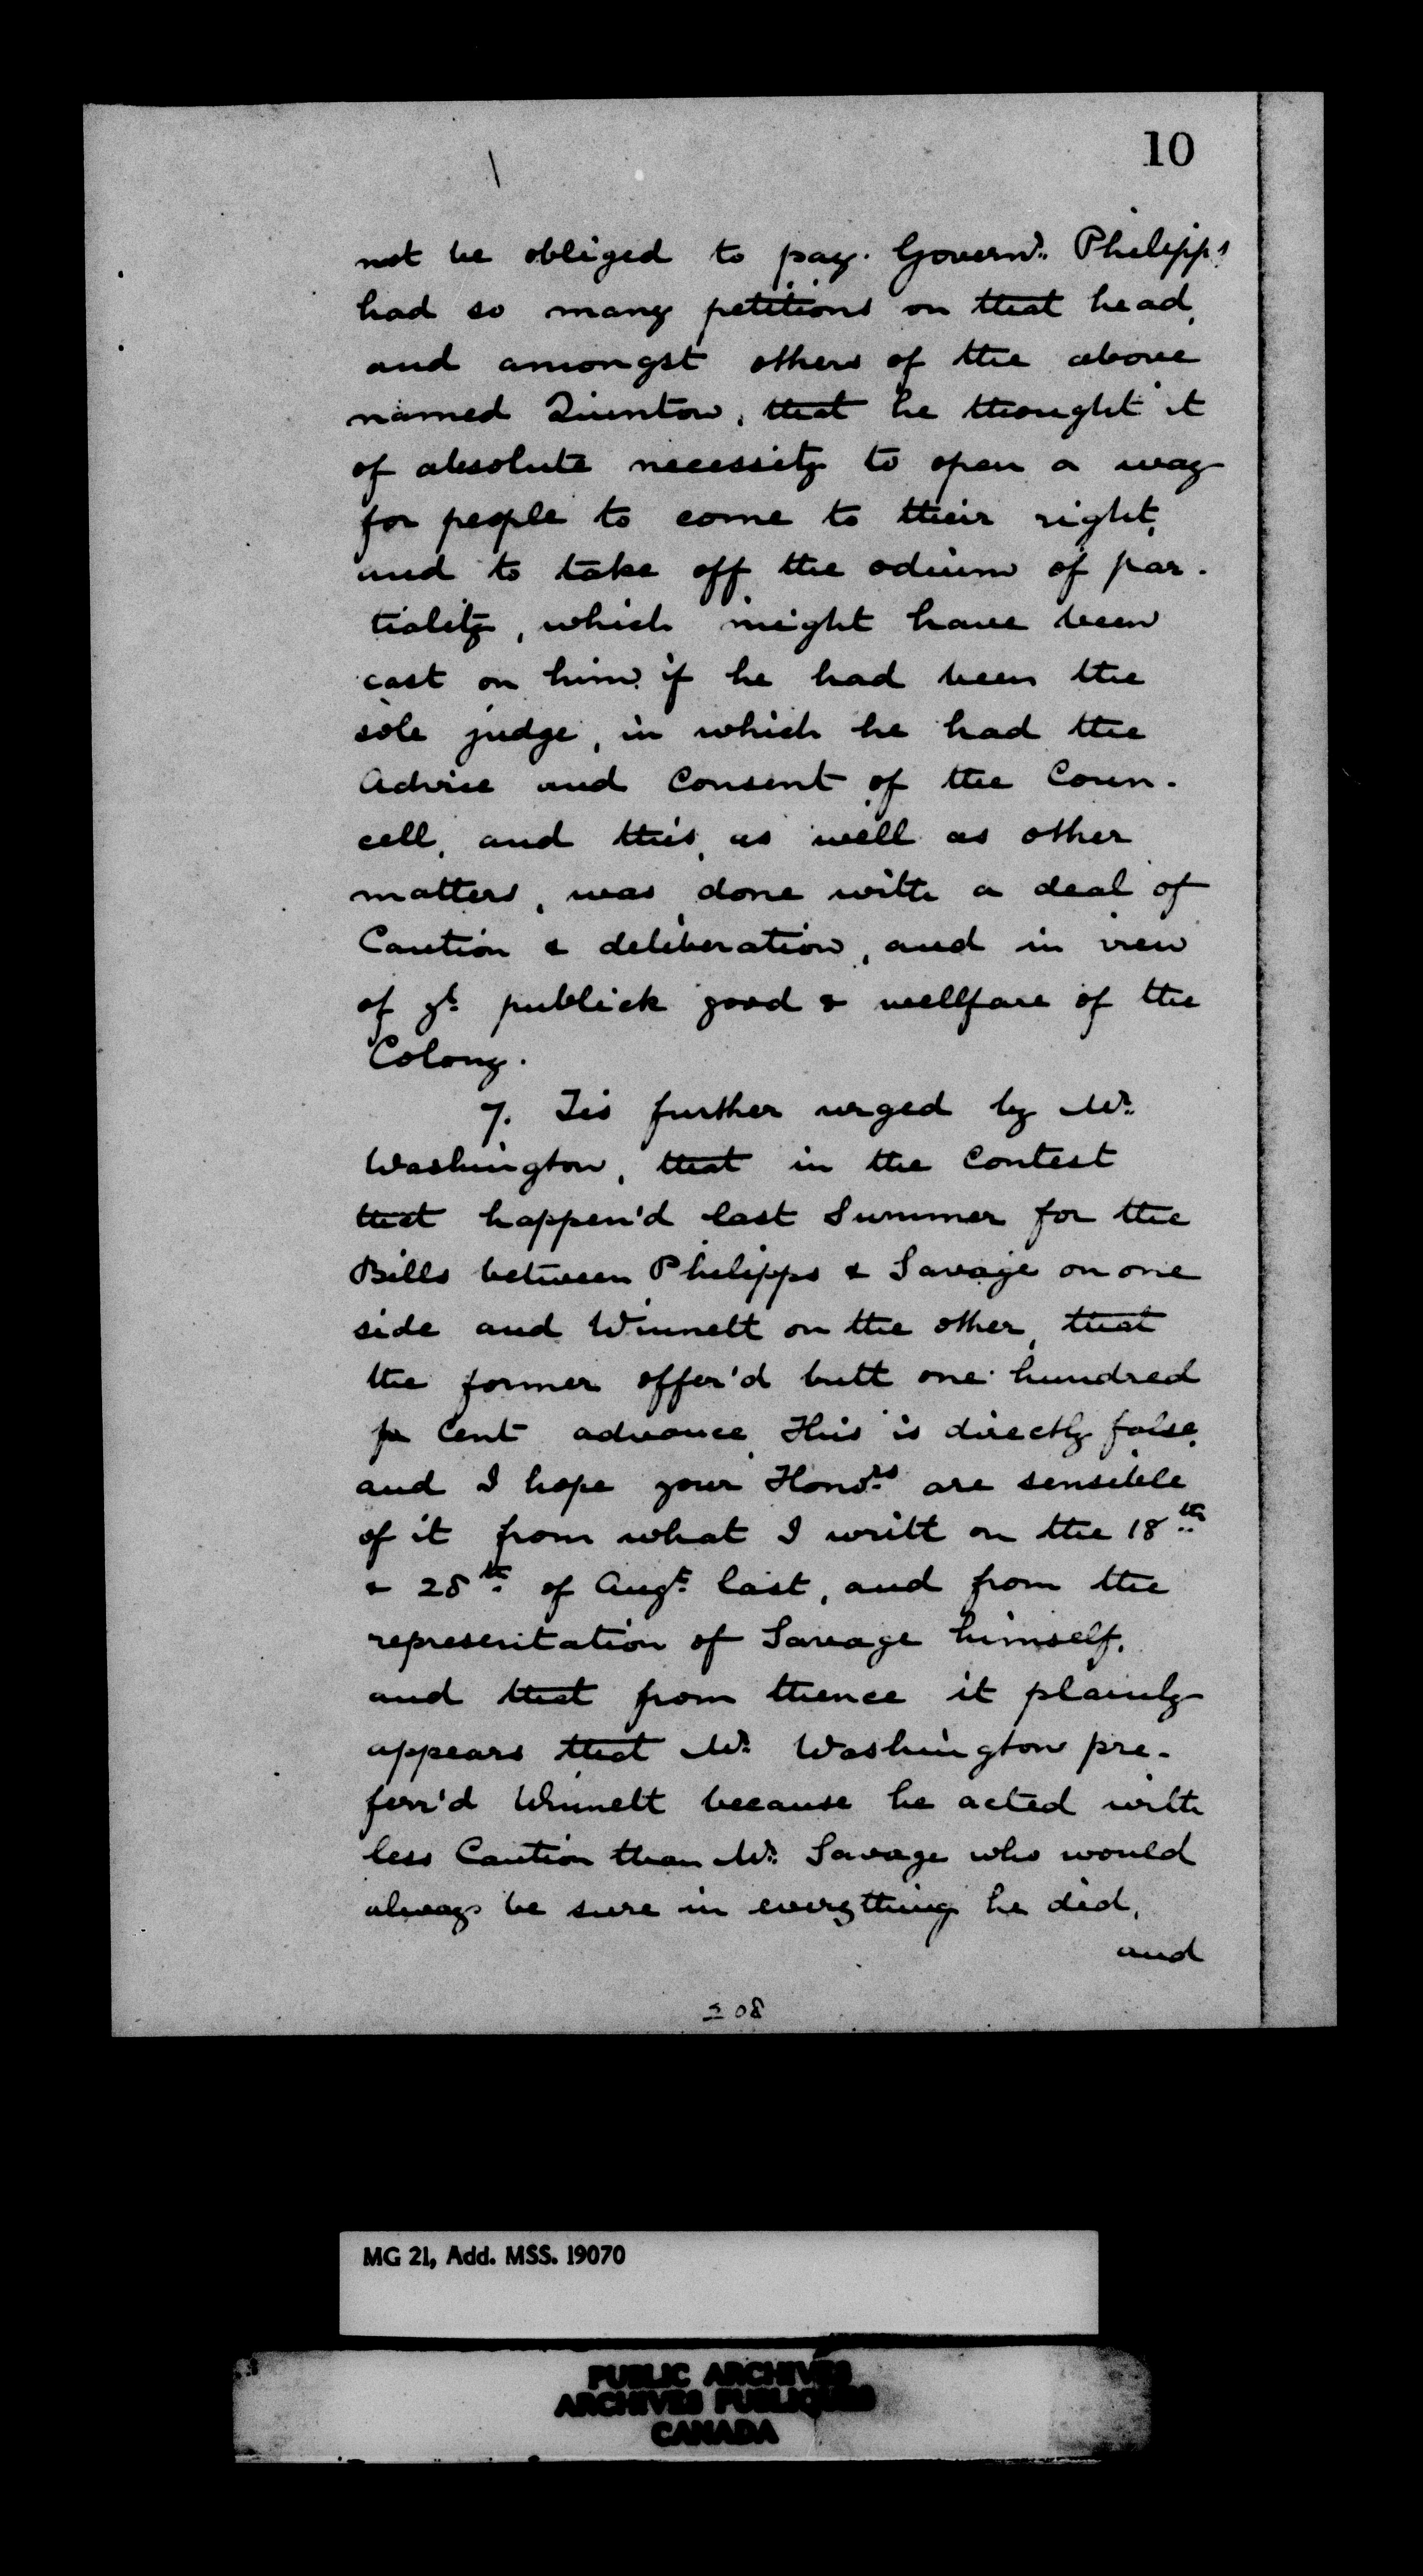 10
not be obliged to pay. Govern.r Philipps
had so many petitions on that head,
and amongst others of the above
named Quinton, that he thought it
of absolute necessity to open a way
for people to come to their right,
and to take off the odium of par-
tiality, which might have been
cast on him if he had been the
sole judge, in which he had the
Advice and Consent of the Coun-
cell, and this, as well as other
matters, was done with a deal of
Caution & deliberation, and in view
of ye publick good & wellfare of the
Colony.
7. Tis further urged by Mr.
Washington, that in the Contest
that happen'd last Summer for the
Bills between Philipps & Savage on one
side and Winnett on the other, that
the former offer'd butt one hundred
pr Cent advance, This is directly false,
and I hope your Honrs. are sensible
of it from what I writt on the 18th
& 28th. of Augt. last, and from the
representation of Savage himself,
and that from thence it plainly
appears that Mr. Washington pre-
ferr'd Winnett because he acted with
less Caution than Mr. Savage who would
always be sure in everything he did,
and
208
MG 21, Add. MSS. 19070
PUBLIC ARCHIVES
ARCHIVES PUBLIQUES
CANADA